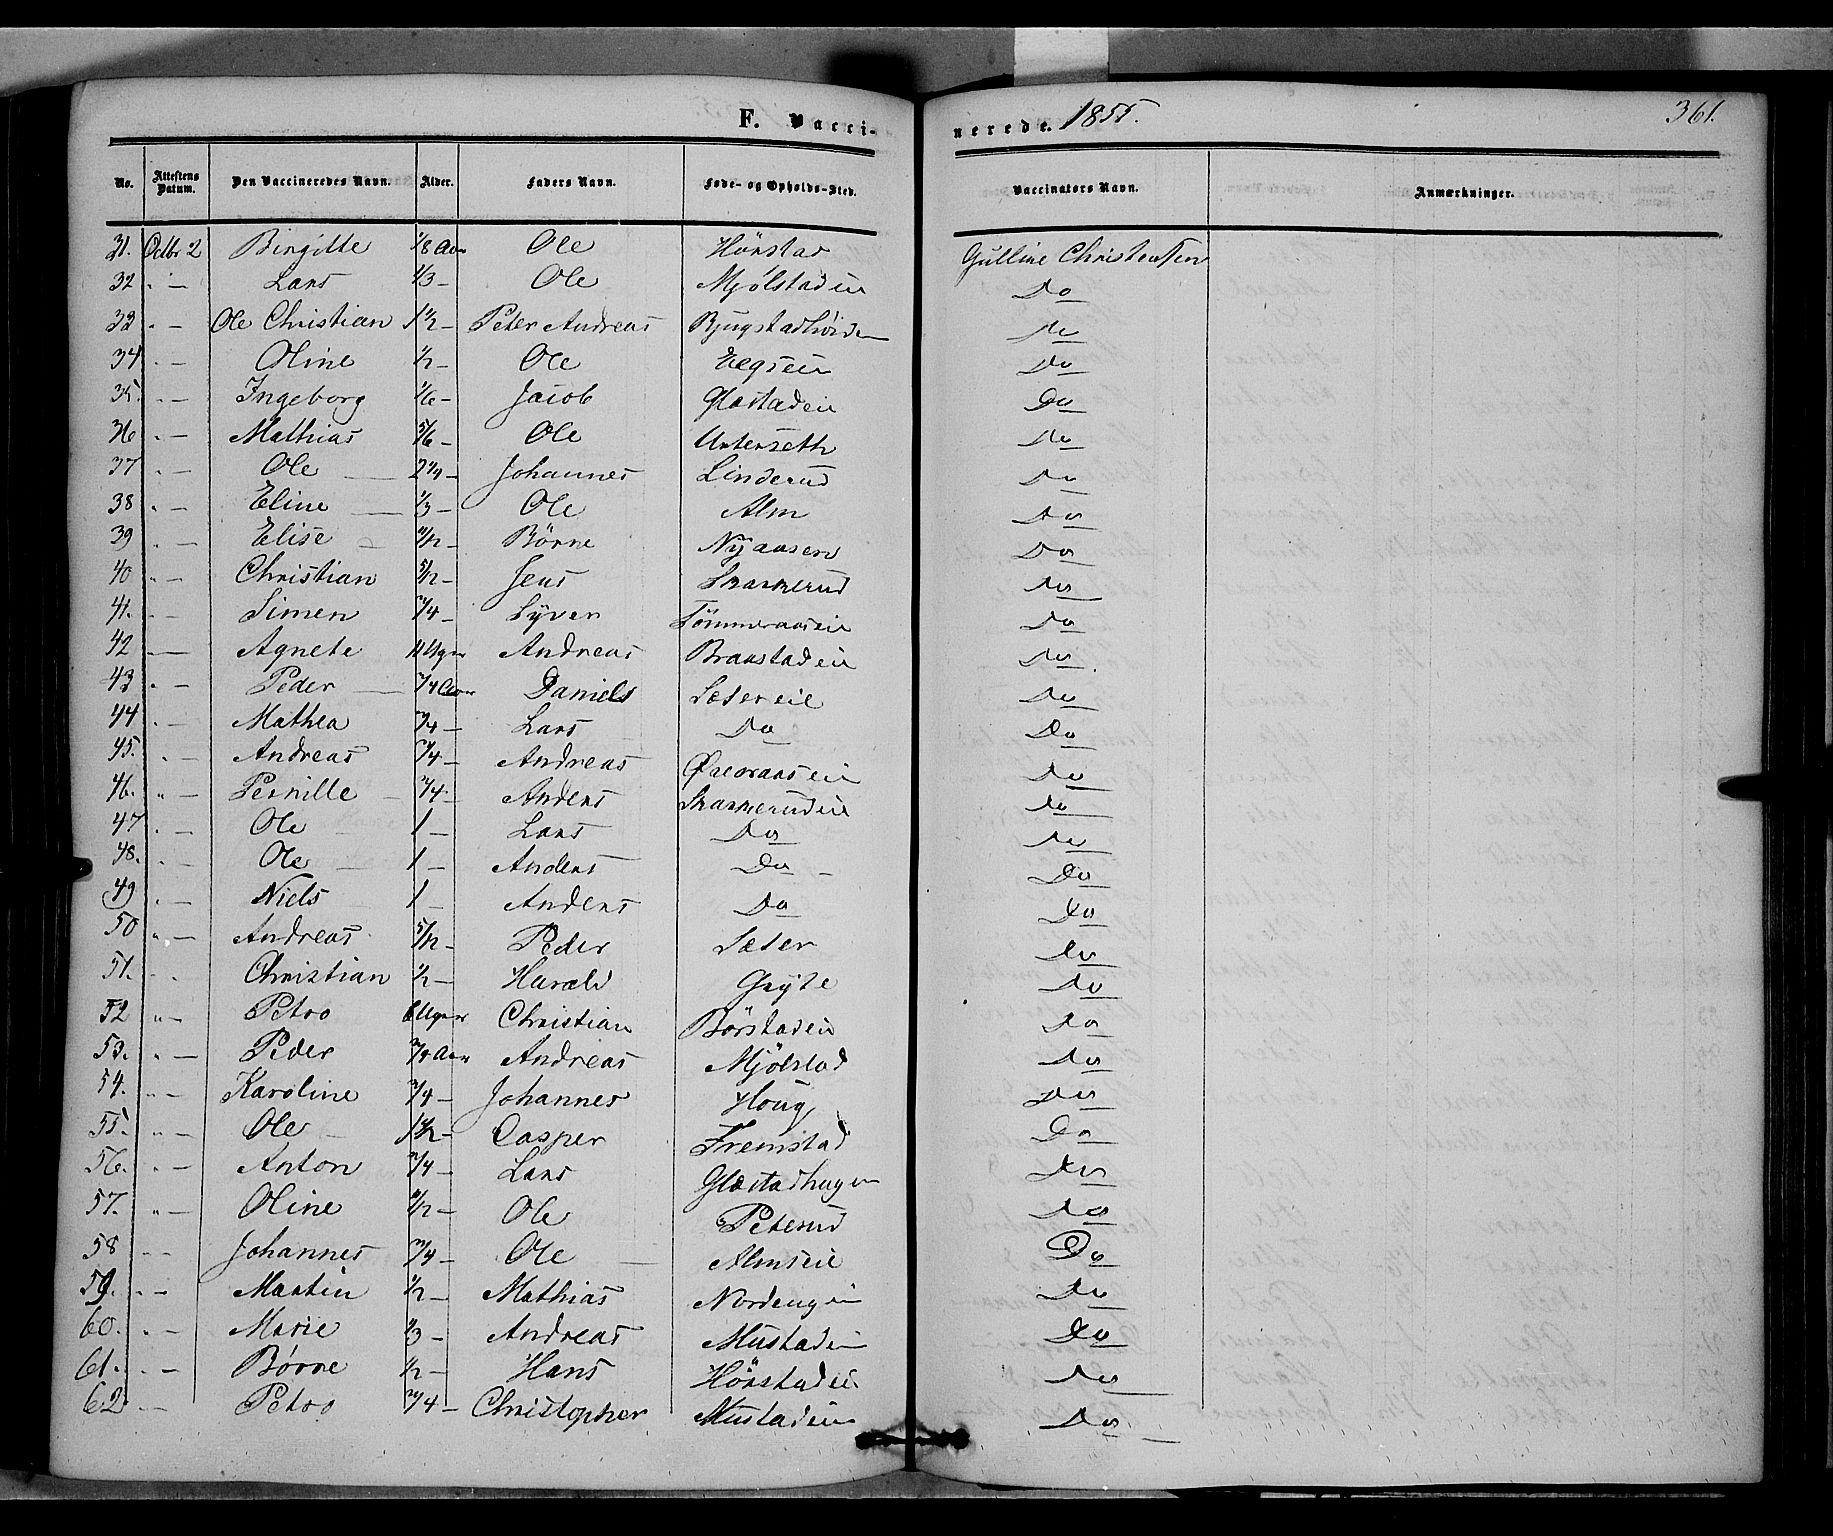 F. Vaccinerede. 1855. 361.
No. Attestens Datum. Den Vaccineredes Navn. Alder. Faders Navn. Føde- og Opholds-Sted. Vaccinators Navn. Anmærkninger.
31. Octbr 2 Birgitte 1/8 Aar Ole Hörstad Gulline Christensen
32 " — Lars 1/3 — Ole Mjölstadeie Do
33 " — Ole Christian 1 1/2 — Peter Andreas Do
34 " — Oline 1/2 — Ole Do
35. " — Ingeborg 1/6 — Jacob Glæstadeie Do
36 " — Mathias 5/6 — Ole Do
37 " — Ole — 2 1/4 — Johannes Linderud Do
38 " — Eline — 1/3 — Ole Alm Do
39 " — Elise — Börre Nyaasen Do
40 " — Christian 5/12 — Jens Skarkerud Do
41. " — Simen 3/4 — Syver Tömmeraaseie Do
42 — Agnete Andreas Braastadeie Do
43 " — Peder — 3/4 Aar Daniels Sætereie Do
44 " — Mathea 3/4 — Lars Do Do
45. " — Andreas 3/4 — Andreas Do
46. " — Pernille — 3/4 — Anders Skarkerudeie Do
47 " — Ole 1 — Lars Do Do
48. " — Ole 1 — Anders Do — Do
49 " — Niels 1 — Anders Do Do
50 " — Andreas 5/12 — Peder Sæter Do
51. " — Christian 1/2 — Harald Gryte Do
52 " — Petro Christian Börstadeie Do
53. " — Peder 3/4 Aar Andreas Mjölstad Do
54. " — Karoline 3/4 — Johannes Houg Do
55. " — Ole 1 1/2 — Casper Fremstad Do
56. " — Anton 3/4 — Lars Glæstadhagen Do
57. " — Oline Ole Peterud Do
58 " — Johannes 3/4 — Ole — Almseie Do
59. " — Martin 1/2 — Mathias Nordengen Do
60. " — Marie 1/3 — Andreas Mustadeie Do
61. " — Börre 1/2 — Hans Hörstadeie Do
62 " — Petro 3/4 — Christopher Mustadeie Do